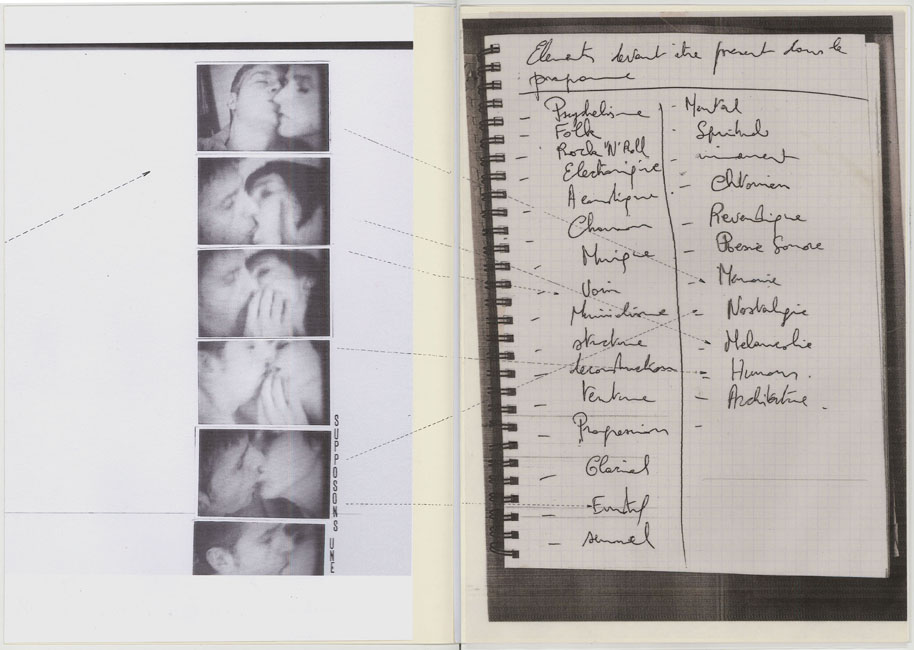 SUPPOSONS UNE
Elements devant être présent dans le
programme
- Psychélisme
- Folk
- Rock 'N' Roll
- Electronique
Acoustique
- Chanson
- Musique
- Voix
- Minimalisme
- structure
- deconstruction
- Texture
- Progression
- Glacial
- Emotif
- sensuel
- Mental
- Spirituel
-
- Chtonien
- Revendique
- Poésie Sonore
-
- Nostalgie
- Melancolie
- Humour.
- Architecture.
-